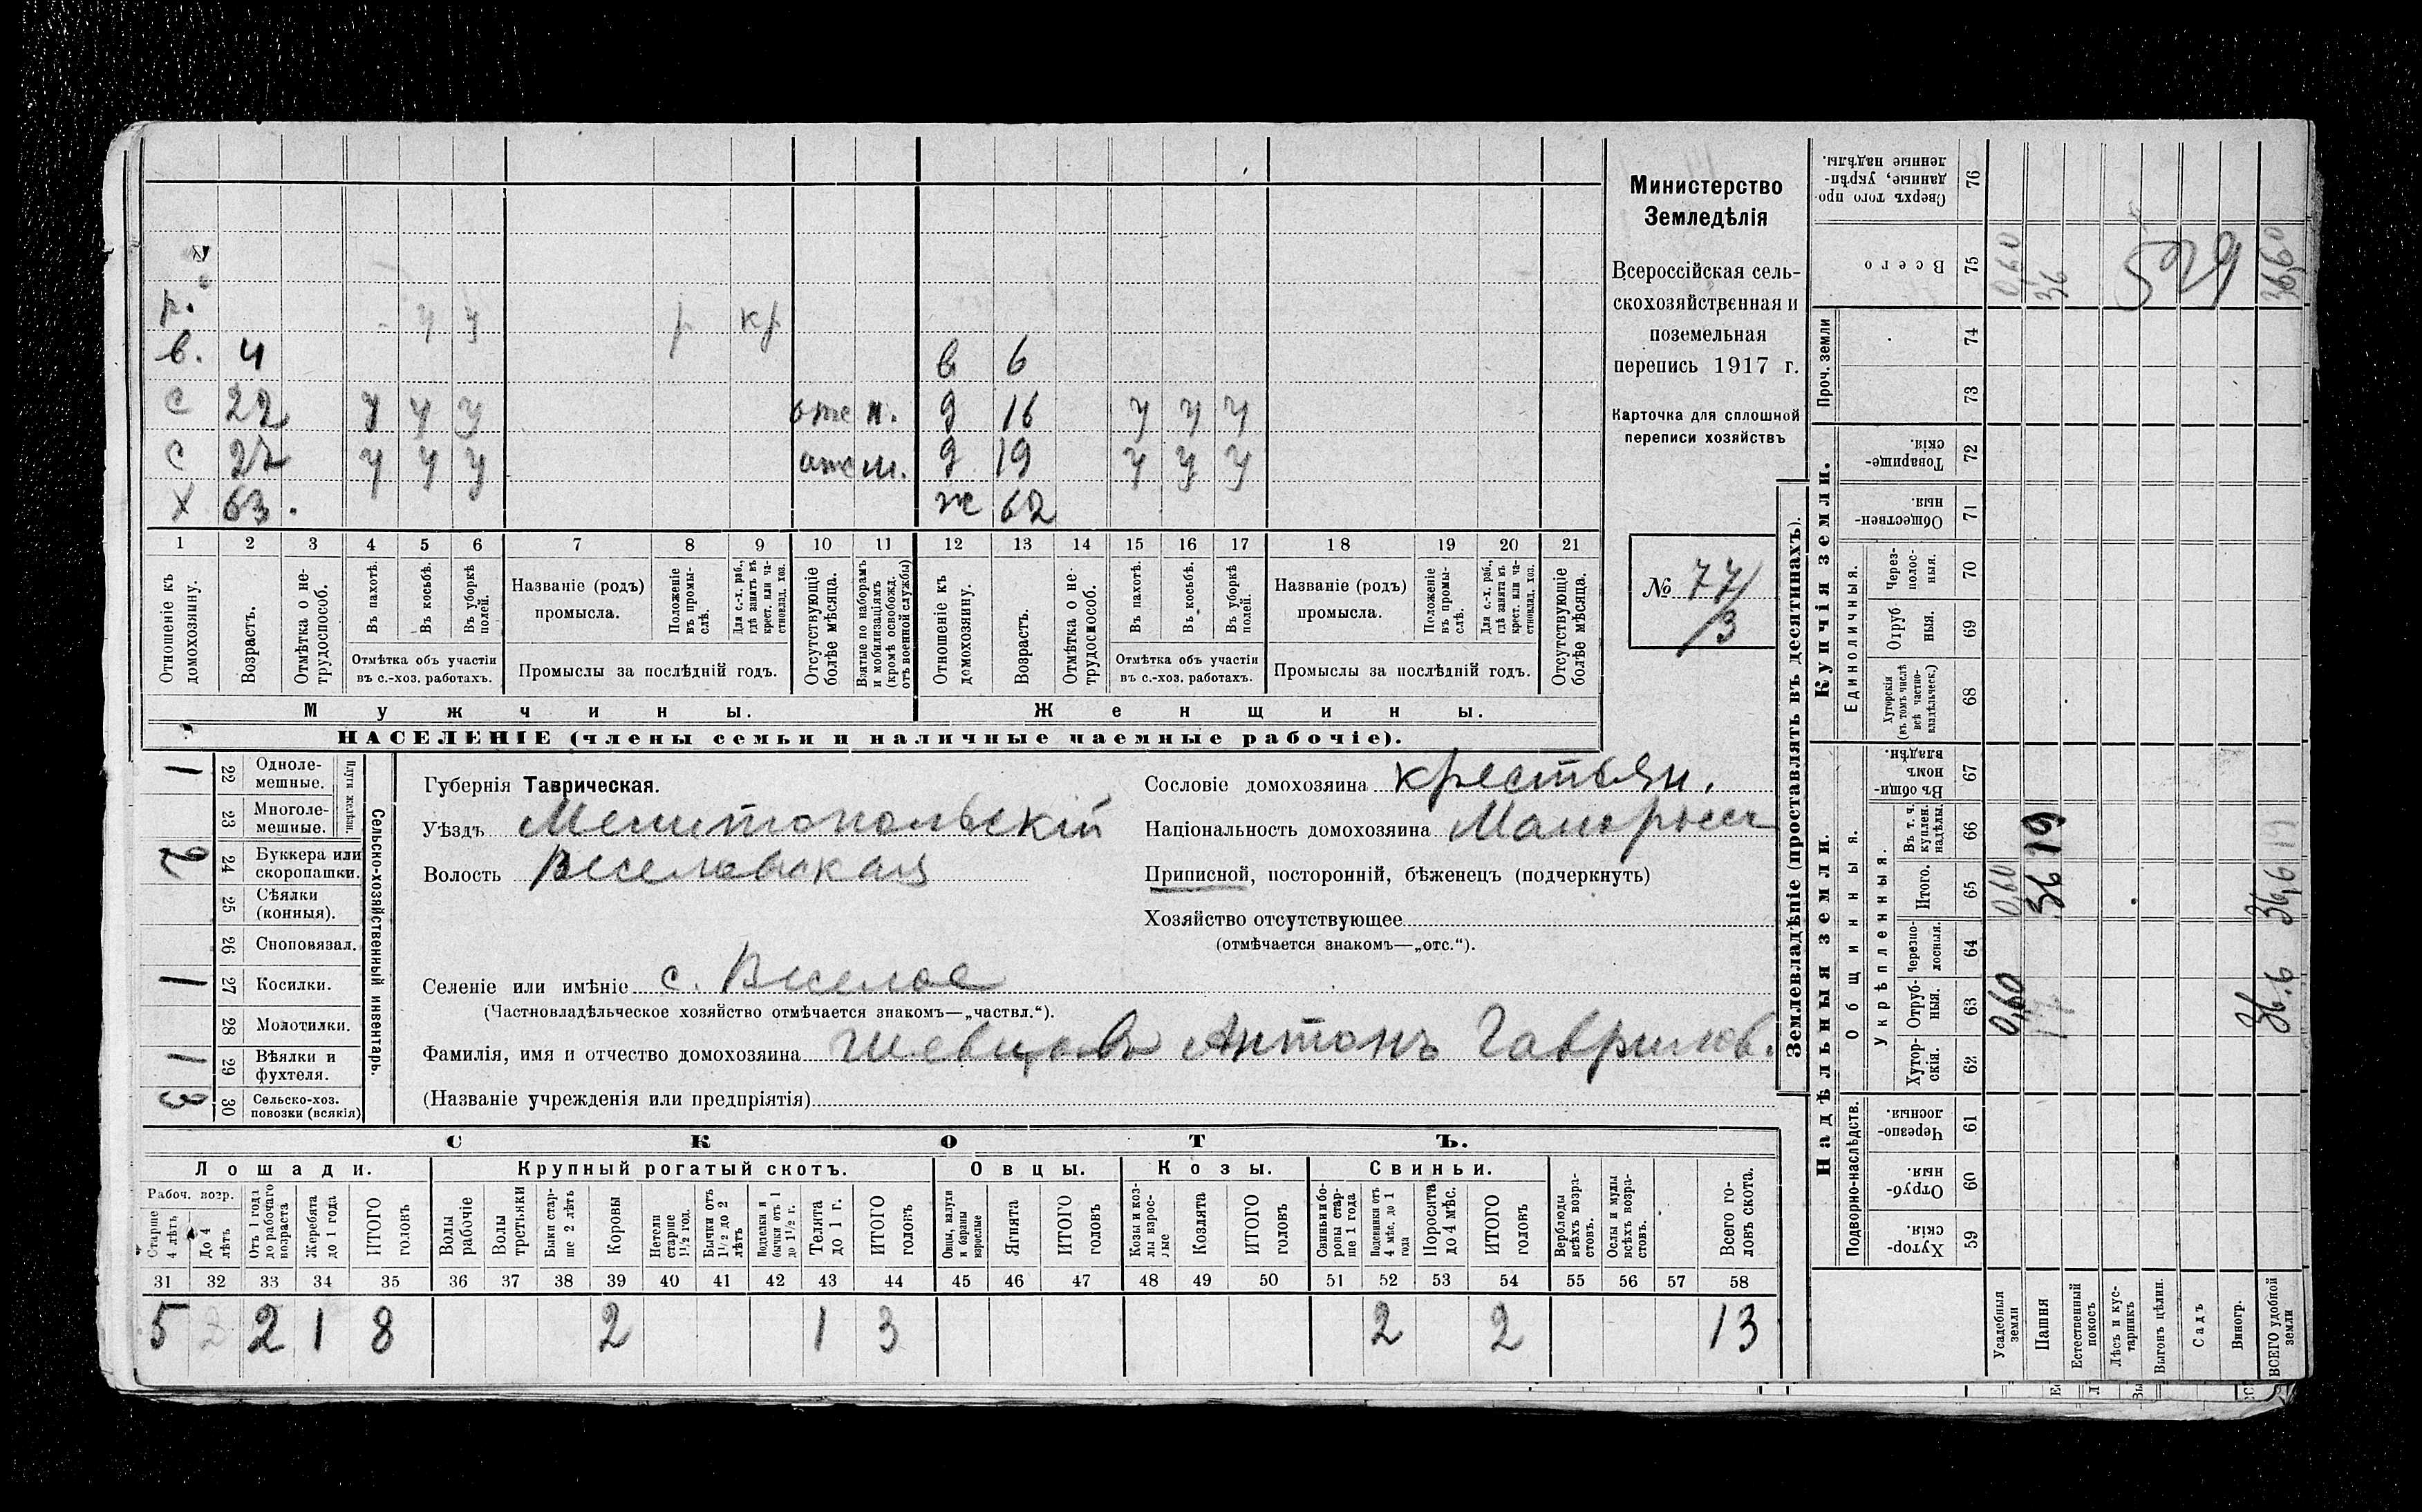 р. у у р кр
в. 4 в 6
с 22 у у у отс н. д 16 у у у
с 27 у у у отс м. д 19 у у у
х 63. ж 62
1 2 3 4 5 6 7 8 9 10 11 12 13 14 15 16 17 18 19 20 21
Отношеніе къ домохозяину.
Возрастъ.
Отмѣтка о не-
трудоспособ.
Въ пахотѣ.
Въ косьбѣ.
Въ уборкѣ полей.
Отмѣтка объ участіи
въ с.-хоз. работахъ.
Названіе (родъ)
промысла.
Положеніе въ промы-
слѣ.
Для с.-х. раб., гдѣ занятъ въ крест. или ча-
стновлад. хоз.
Промыслы за послѣдній годъ.
Отсутствующіе болѣе мѣсяца.
Взятые по наборамъ и мобилизаціямъ (кромѣ освобожд. отъ военной службы)
Отношеніе къ домохозяину.
Возрастъ.
Отмѣтка о не-
трудоспособ.
Въ пахотѣ.
Въ косьбѣ.
Въ уборкѣ полей.
Отмѣтка объ участіи
въ с.-хоз. работахъ.
Названіе (родъ)
промысла.
Положеніе въ промы-
слѣ.
Для с.-х. раб., гдѣ занята въ крест. или ча-
стновлад. хоз.
Промыслы за послѣдній годъ.
Отсутствующіе болѣе мѣсяца.
Мужчины. Женщины.
НАСЕЛЕНІЕ (члены семьи и наличные наемные рабочіе).
Министерство
Земледѣлія
Всероссійская сель-
скохозяйственная и
поземельная
перепись 1917 г.
Карточка для сплошной
переписи хозяйствъ
№ 77/3
1 22 Одноле-
мешные.
23 Многоле-
мешные.
Плуги желѣзн.
2 24 Буккера или
скоропашки.
25 Сѣялки
(конныя).
26 Сноповязал.
1 27 Косилки.
28 Молотилки.
1 29 Вѣялки и
фухтеля.
3 30 Сельско-хоз.
повозки (всякія)
Сельско-хозяйственный инвентарь.
Губернія Таврическая.
Уѣздъ Мелитопольскій
Волость Веселовская
Селеніе или имѣніе с. Веселое
(Частновладѣльческое хозяйство отмѣчается знакомъ—„частвл.“).
Фамилія, имя и отчество домохозяина Шевцовъ Антонъ Гаврилов.
(Названіе учрежденія или предпріятія)
Сословіе домохозяина крестьян.
Національность домохозяина Малоросъ
Приписной, посторонній, бѣженецъ (подчеркнуть)
Хозяйство отсутствующее
(отмѣчается знакомъ—„отс.“).
СКОТЪ.
Лошади. Крупный рогатый скотъ. Овцы. Козы. Свиньи.
Рабоч. возр.
Старше 4 лѣтъ
До 4 лѣтъ
Отъ 1 года до рабочаго возраста
Жеребята до 1 года
ИТОГО головъ
Волы рабочіе
Волы третьяки
Быки стар-
ше 2 лѣтъ
Коровы
Нетели старше 1½ год.
Бычки отъ 1½ до 2 лѣтъ
Подтелки и бычки отъ 1 до 1½ г.
Телята до 1 г.
ИТОГО головъ
Овцы, валухи и бараны взрослые
Ягнята
ИТОГО головъ
Козы и коз-
лы взрос-
лые
Козлята
ИТОГО головъ
Свиньи и бо-
ровы стар-
ше 1 года
Подсвинки отъ 4 мѣс. до 1 года
Поросята до 4 мѣс.
ИТОГО головъ
Верблюды всѣхъ возра-
стовъ.
Ослы и мулы всѣхъ возра-
стовъ.
Всего го-
ловъ скота.
31 32 33 34 35 36 37 38 39 40 41 42 43 44 45 46 47 48 49 50 51 52 53 54 55 56 57 58
5 2 2 1 8 2 1 3 2 2 13
Землевладѣніе (проставлять въ десятинахъ).
Надѣльныя земли. Купчія земли. Проч. земли
Подворно-наслѣдств.
Общинныя.
Укрѣпленныя.
Единоличныя.
Хутор-
скія. 59
Отруб-
ныя. 60
Черезпо-
лосныя. 61
Хутор-
скія. 62
Отруб-
ныя. 63
Черезпо-
лосныя. 64
Итого. 65
Въ т. ч. куплен. надѣлы. 66
Въ общин-
номъ владѣн. 67
Хуторскія (въ томъ числѣ всѣ частно-
владѣльческ.) 68
Отруб
ныя. 69
Через-
полос-
ныя. 70
Обществен-
ныя. 71
Товарище-
скія. 72
73
74
Всего 75
Сверхъ того про-
данные, укрѣп-
ленные надѣлы. 76
Усадебныя земли 0,60 0,60 0,60
Пашня 36 19 36
Естественный покосъ
Лѣсъ и кус-
тарникъ
Выгонъ цѣлин.
Садъ
Виногр.
ВСЕГО удобной земли 36.6 36,6 19 36,60
529